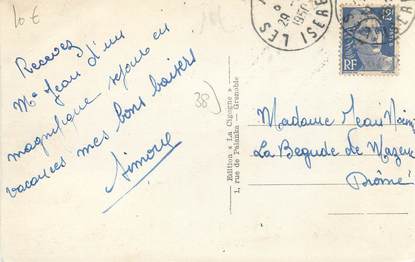 10€
Recevez
Mr Jean d'un
magnifique séjour en
vacances mes bons baisers
38)
Edition « La Cigogne »
1, rue de Palanka — Grenoble
ISERE
1950
RF
Madame Jean
La Begude de Mazenc
Drôme